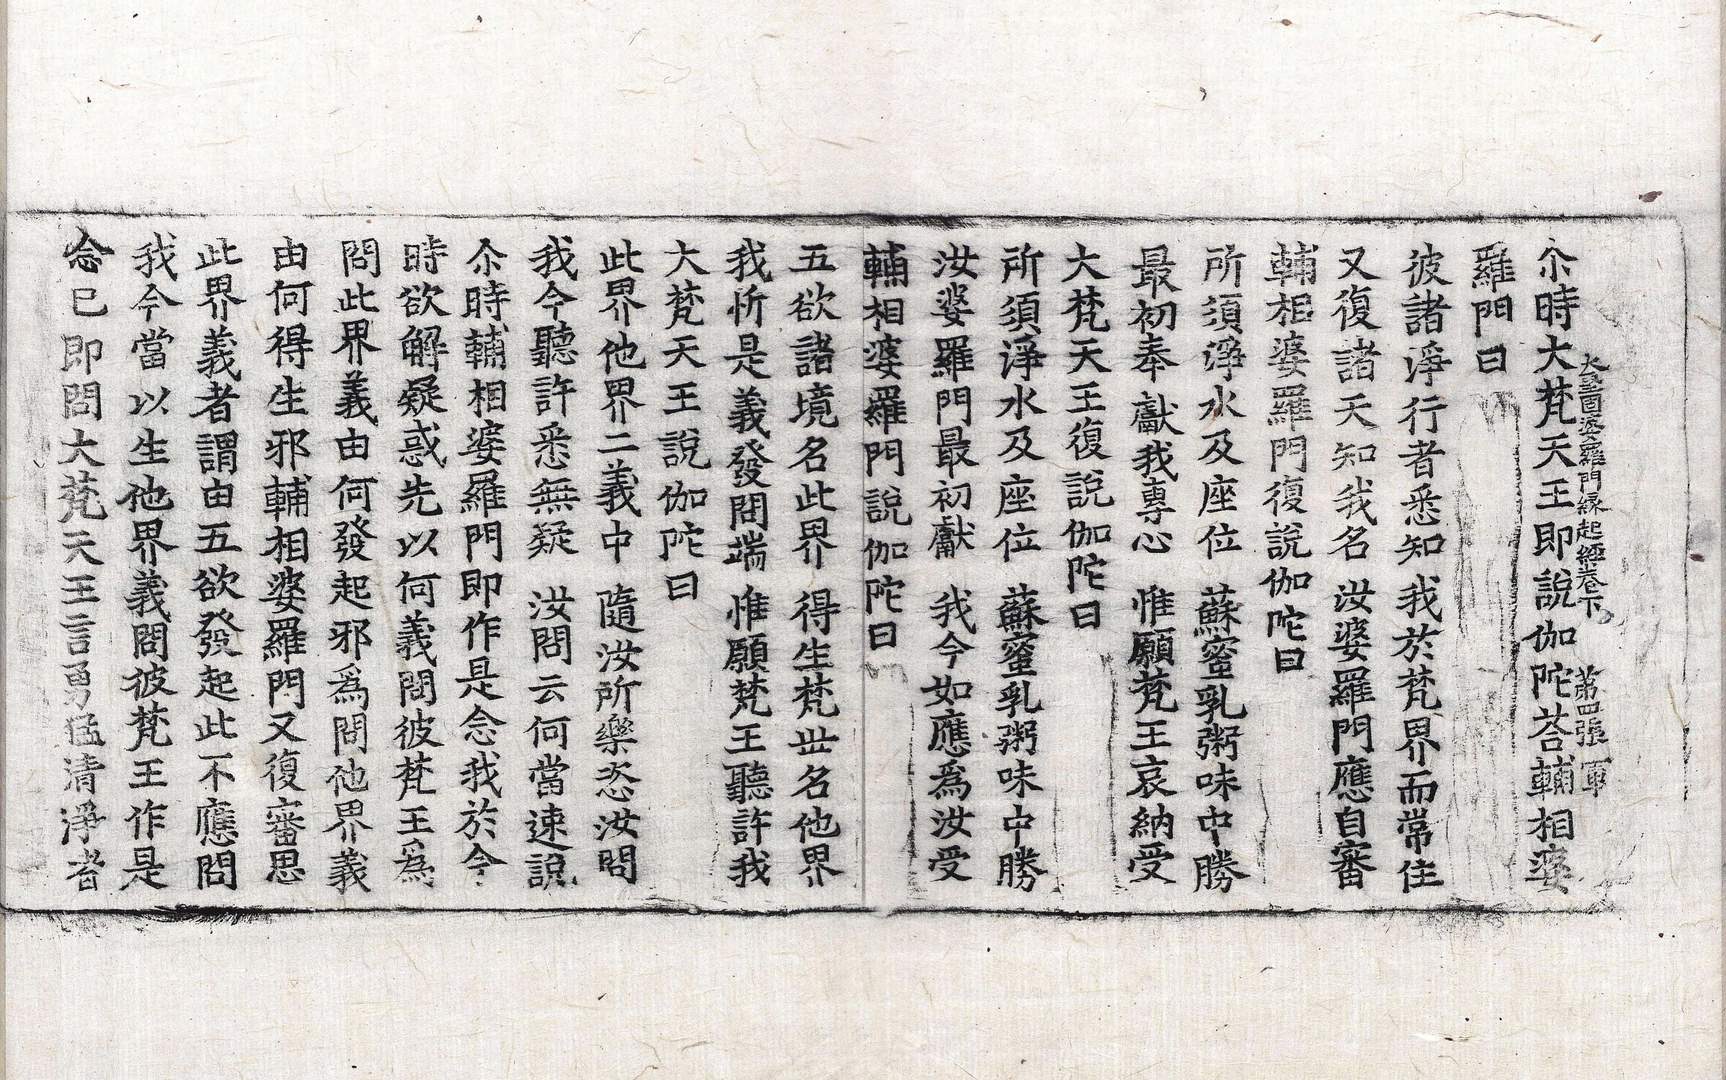 大堅固婆羅門緣起經卷下 苐四張 軍
尒時大梵天王即說伽陀荅輔相婆
羅門曰
彼諸淨行者悉知 我於梵界而常住
又復諸天知我名 汝婆羅門應自審
輔相婆羅門復說伽陀曰
所須淨水及座位 蘇蜜乳粥味中勝
最初奉獻我專心 惟願梵王哀納受
大梵天王復說伽陀曰
所須淨水及座位 蘇蜜乳粥味中勝
汝婆羅門最初獻 我今如應爲汝受
輔相婆羅門說伽陀曰
五欲諸境名此界 得生梵丗名他界
我忻是義發問端 惟願梵王聽許我
大梵天王說伽陀曰
此界他界二義中 隨汝所樂恣汝問
我今聽許悉無疑 汝問云何當速說
尒時輔相婆羅門即作是念我於今
時欲解疑惑先以何義問彼梵王爲
問此界義由何發起邪爲問他界義
由何得生邪輔相婆羅門又復審思
此界義者謂由五欲發起此不應問
我今當以生他界義問彼梵王作是
念已即問大梵天王言勇猛清淨者